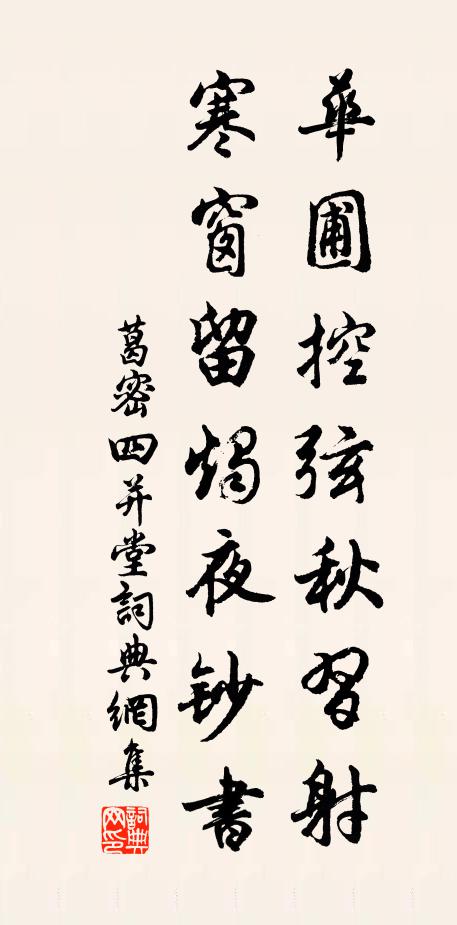 華圃控弦秋習射
寒窗留燭夜鈔書
葛密四并堂詞典網集
詞典网印